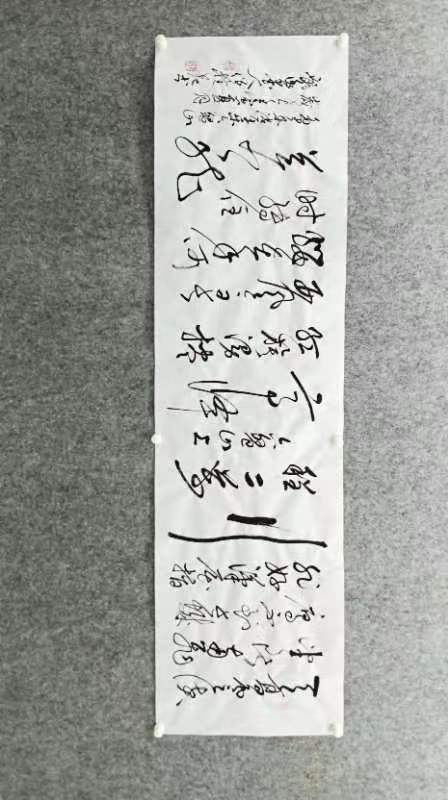 天高云淡
望断南飞
雁不到长城
非好漢屈指
行
程二萬
六盘山上
高峰
红旗漫捲
西風今日长
缨在手何
时缚住
苍龙
毛泽东清平乐六盘山